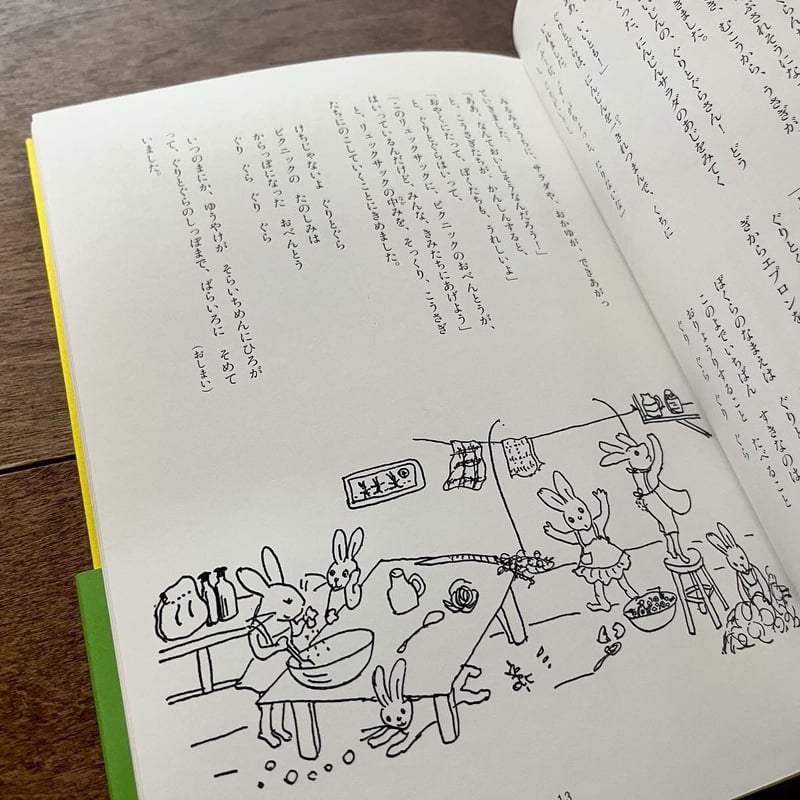 ぶされそうにな
き、むこうから、うさぎが
きました。
いじんの、ぐりとぐらさん！ どう
くった、にんじんサラダのあじをみてく
いいとも」
りとぐらは、にんじんを一きれつまんで、くちに
ぐりとぐ
ぎからエプロンを
ぼくらのなまえは ぐり
このよでいちばん すきなのは
おりょうりすること たべること
ぐり ぐら ぐり ぐら
みるみるうちに、サラダや、おかゆが、できあがっ
てきました。
「ああ、なんておいしそうなんだろう！」
と、こうさぎたちが、かんしんすると、
「おやくにたって、ぼくたちも、うれしいよ」
と、ぐりとぐらはいって、
「このリュックサックに、ピクニックのおべんとうが、
はいっているんだけど、みんな、きみたちにあげよう」
と、リュックサックの中みを、そっくり、こうさぎ
たちにのこしていくことにきめました。
けちじゃないよ ぐりとぐら
ピクニックの たのしみは
からっぽになった おべんとう
ぐり ぐら ぐり ぐら
いつのまにか、ゆうやけが そらいちめんにひろが
って、ぐりとぐらのしっぽまで、ばらいろに そめて
いました。
（おしまい）
13